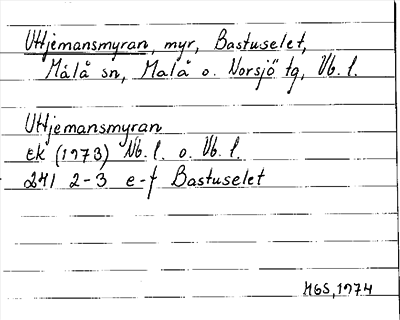 Uttjemansmyran, myr, Bastuselet,
Malå sn, Malå o. Norsjö tg, Vb. l.
Uttjemansmyran
EK (1973) Nb. l. o. Vb. l.
241 2-3 e-f Bastuselet
MGS, 1974